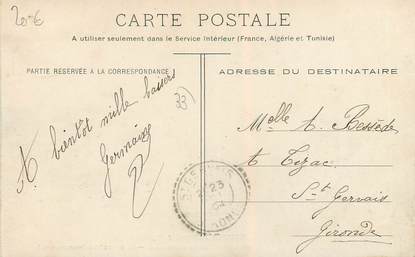 20-€
CARTE POSTALE
A utiliser seulement dans le Service Intérieur (France, Algérie et Tunisie)
PARTIE RÉSERVÉE A LA CORRESPONDANCE
ADRESSE DU DESTINATAIRE
33
A bientôt mille baisers
Germaine
Melle A. Bessède
A Tizac
St Gervais
Gironde
23